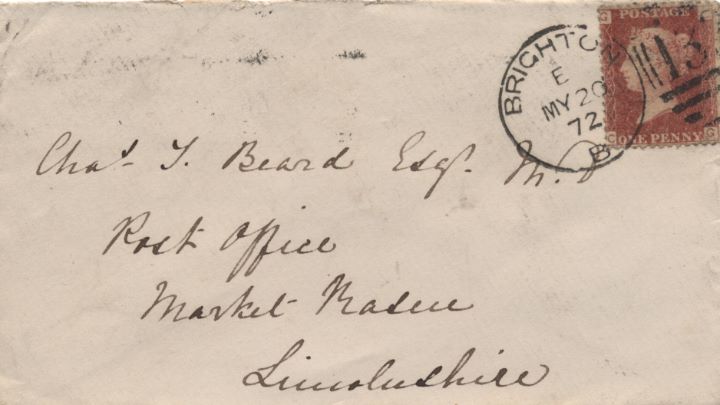 G POSTAGE
BRIGHTON
E
MY 20
72
B
G ONE PENNY G
Chas. T. Beard Esqr. M.D
Post Office
Market Rasen
Lincolnshire